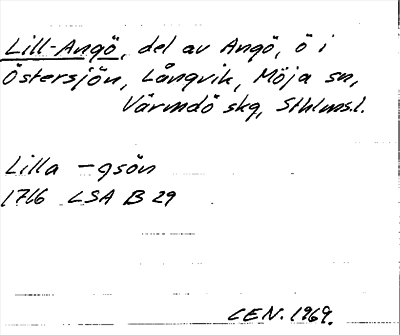 Lill-Angö, del av Angö, ö i
Östersjön, Långvik, Möja sn,
Värmdö skg, Sthlms.l.
Lilla -gsön
1716 LSA B 29
CEN. 1969.